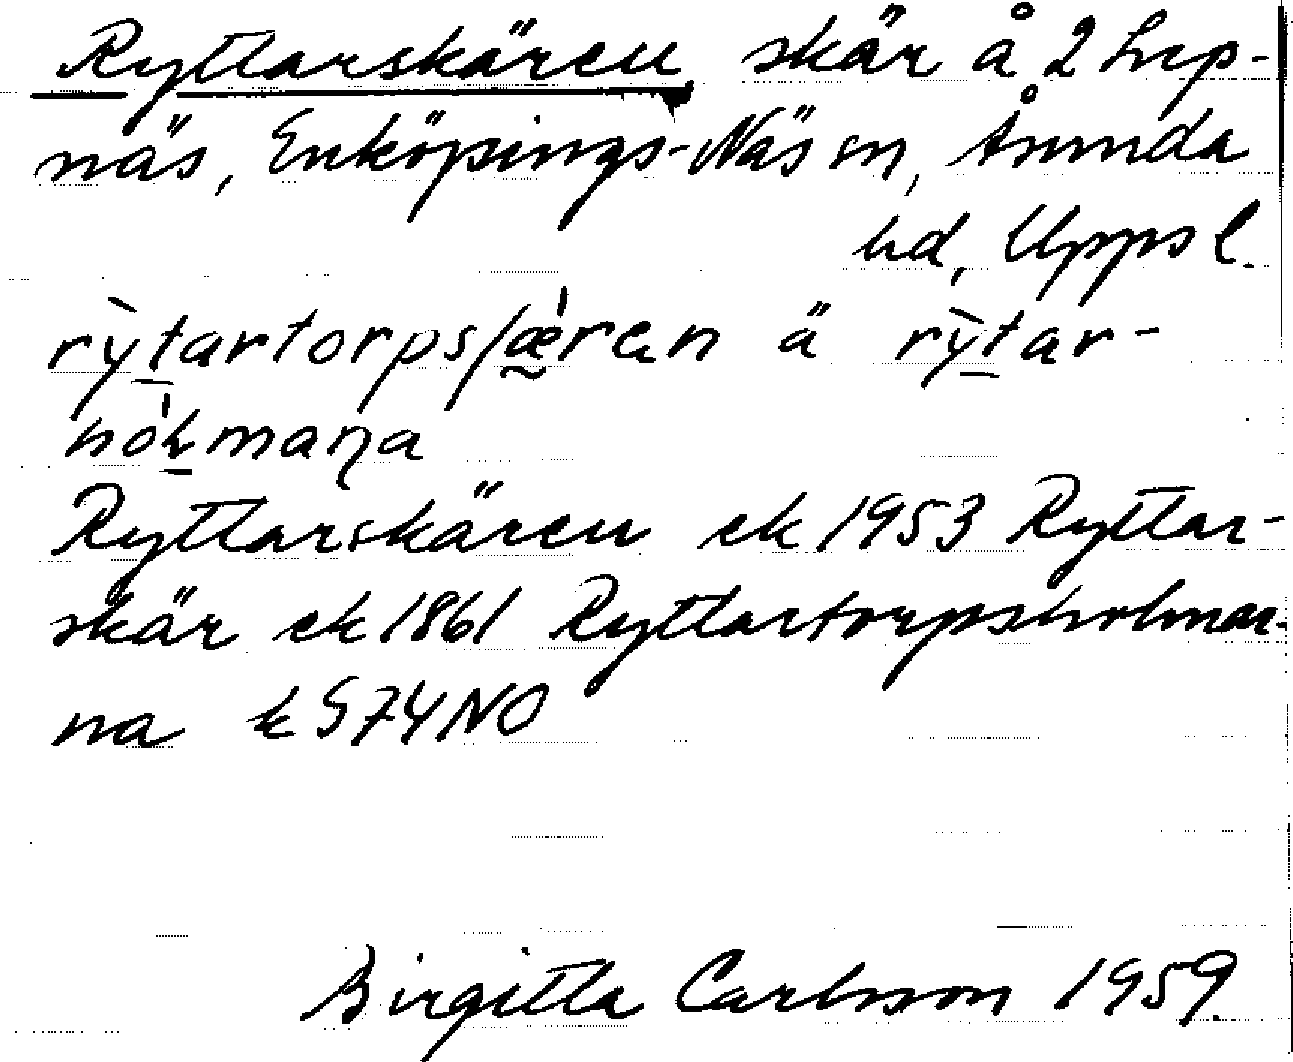 Ryttarskären, skär å 2 hep-
näs, Enköpings-Näs sn, Åsunda
hd, Uppsl.
rỳtartorpsʃæ̀ren ä rỳtar-
hòḷmaṇa
Ryttarskären ek 1953 Ryttar-
skär ek 1861 Ryttartorpsholmar-
na k S74NO
Birgitta Carlsson 1959.